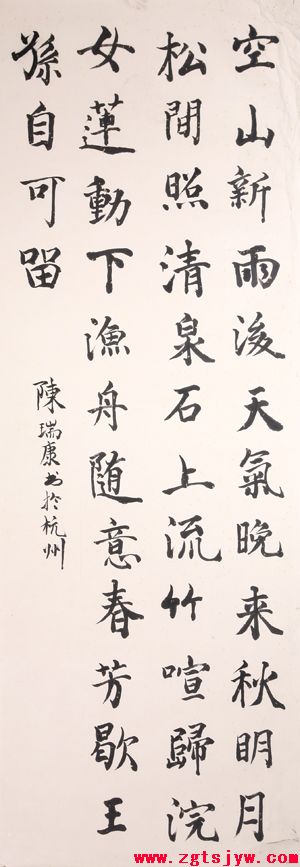 空山新雨後天氣晚来秋明月
松間照清泉石上流竹喧歸浣
女蓮動下漁舟随意春芳歇王
孫自可留
陳瑞康书於杭州
www.zgtsjyw.com